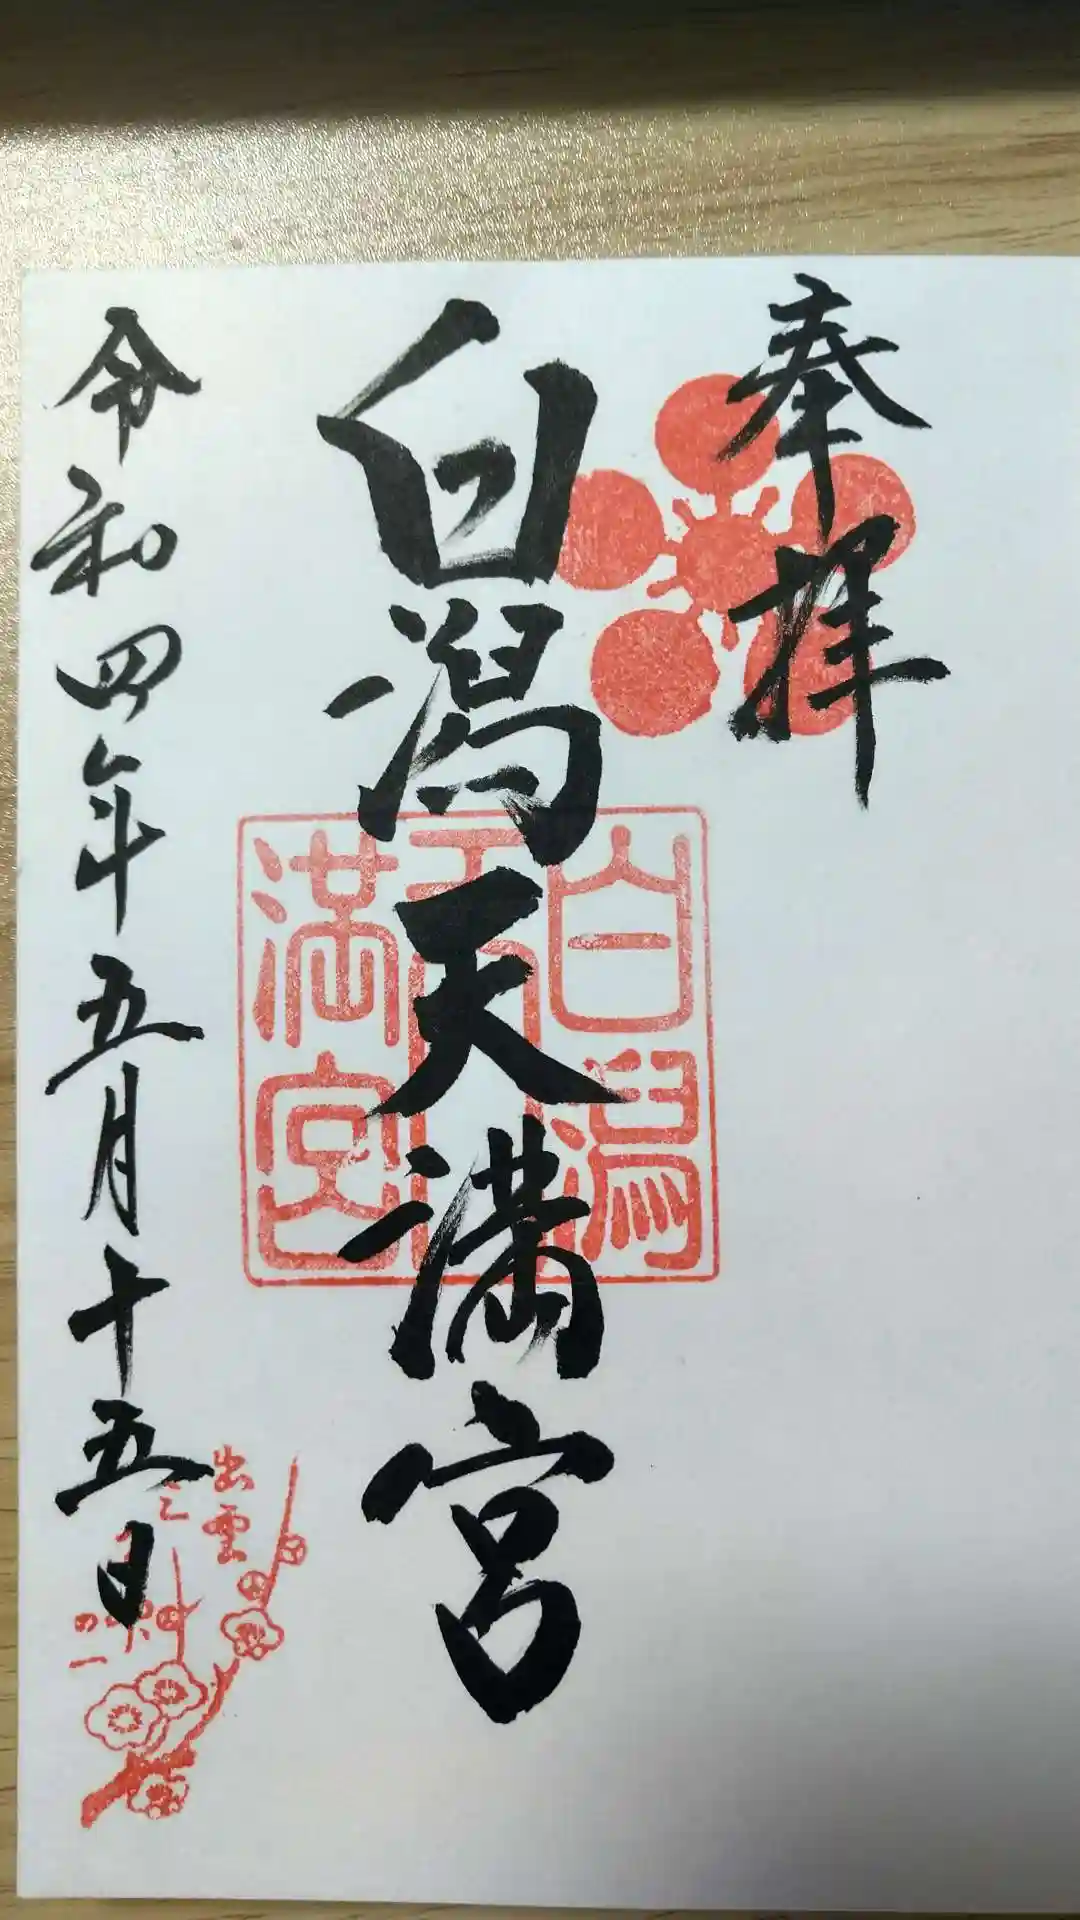 奉拝
白潟天満宮
白潟
天
満宮
令和四年五月十五日
出雲